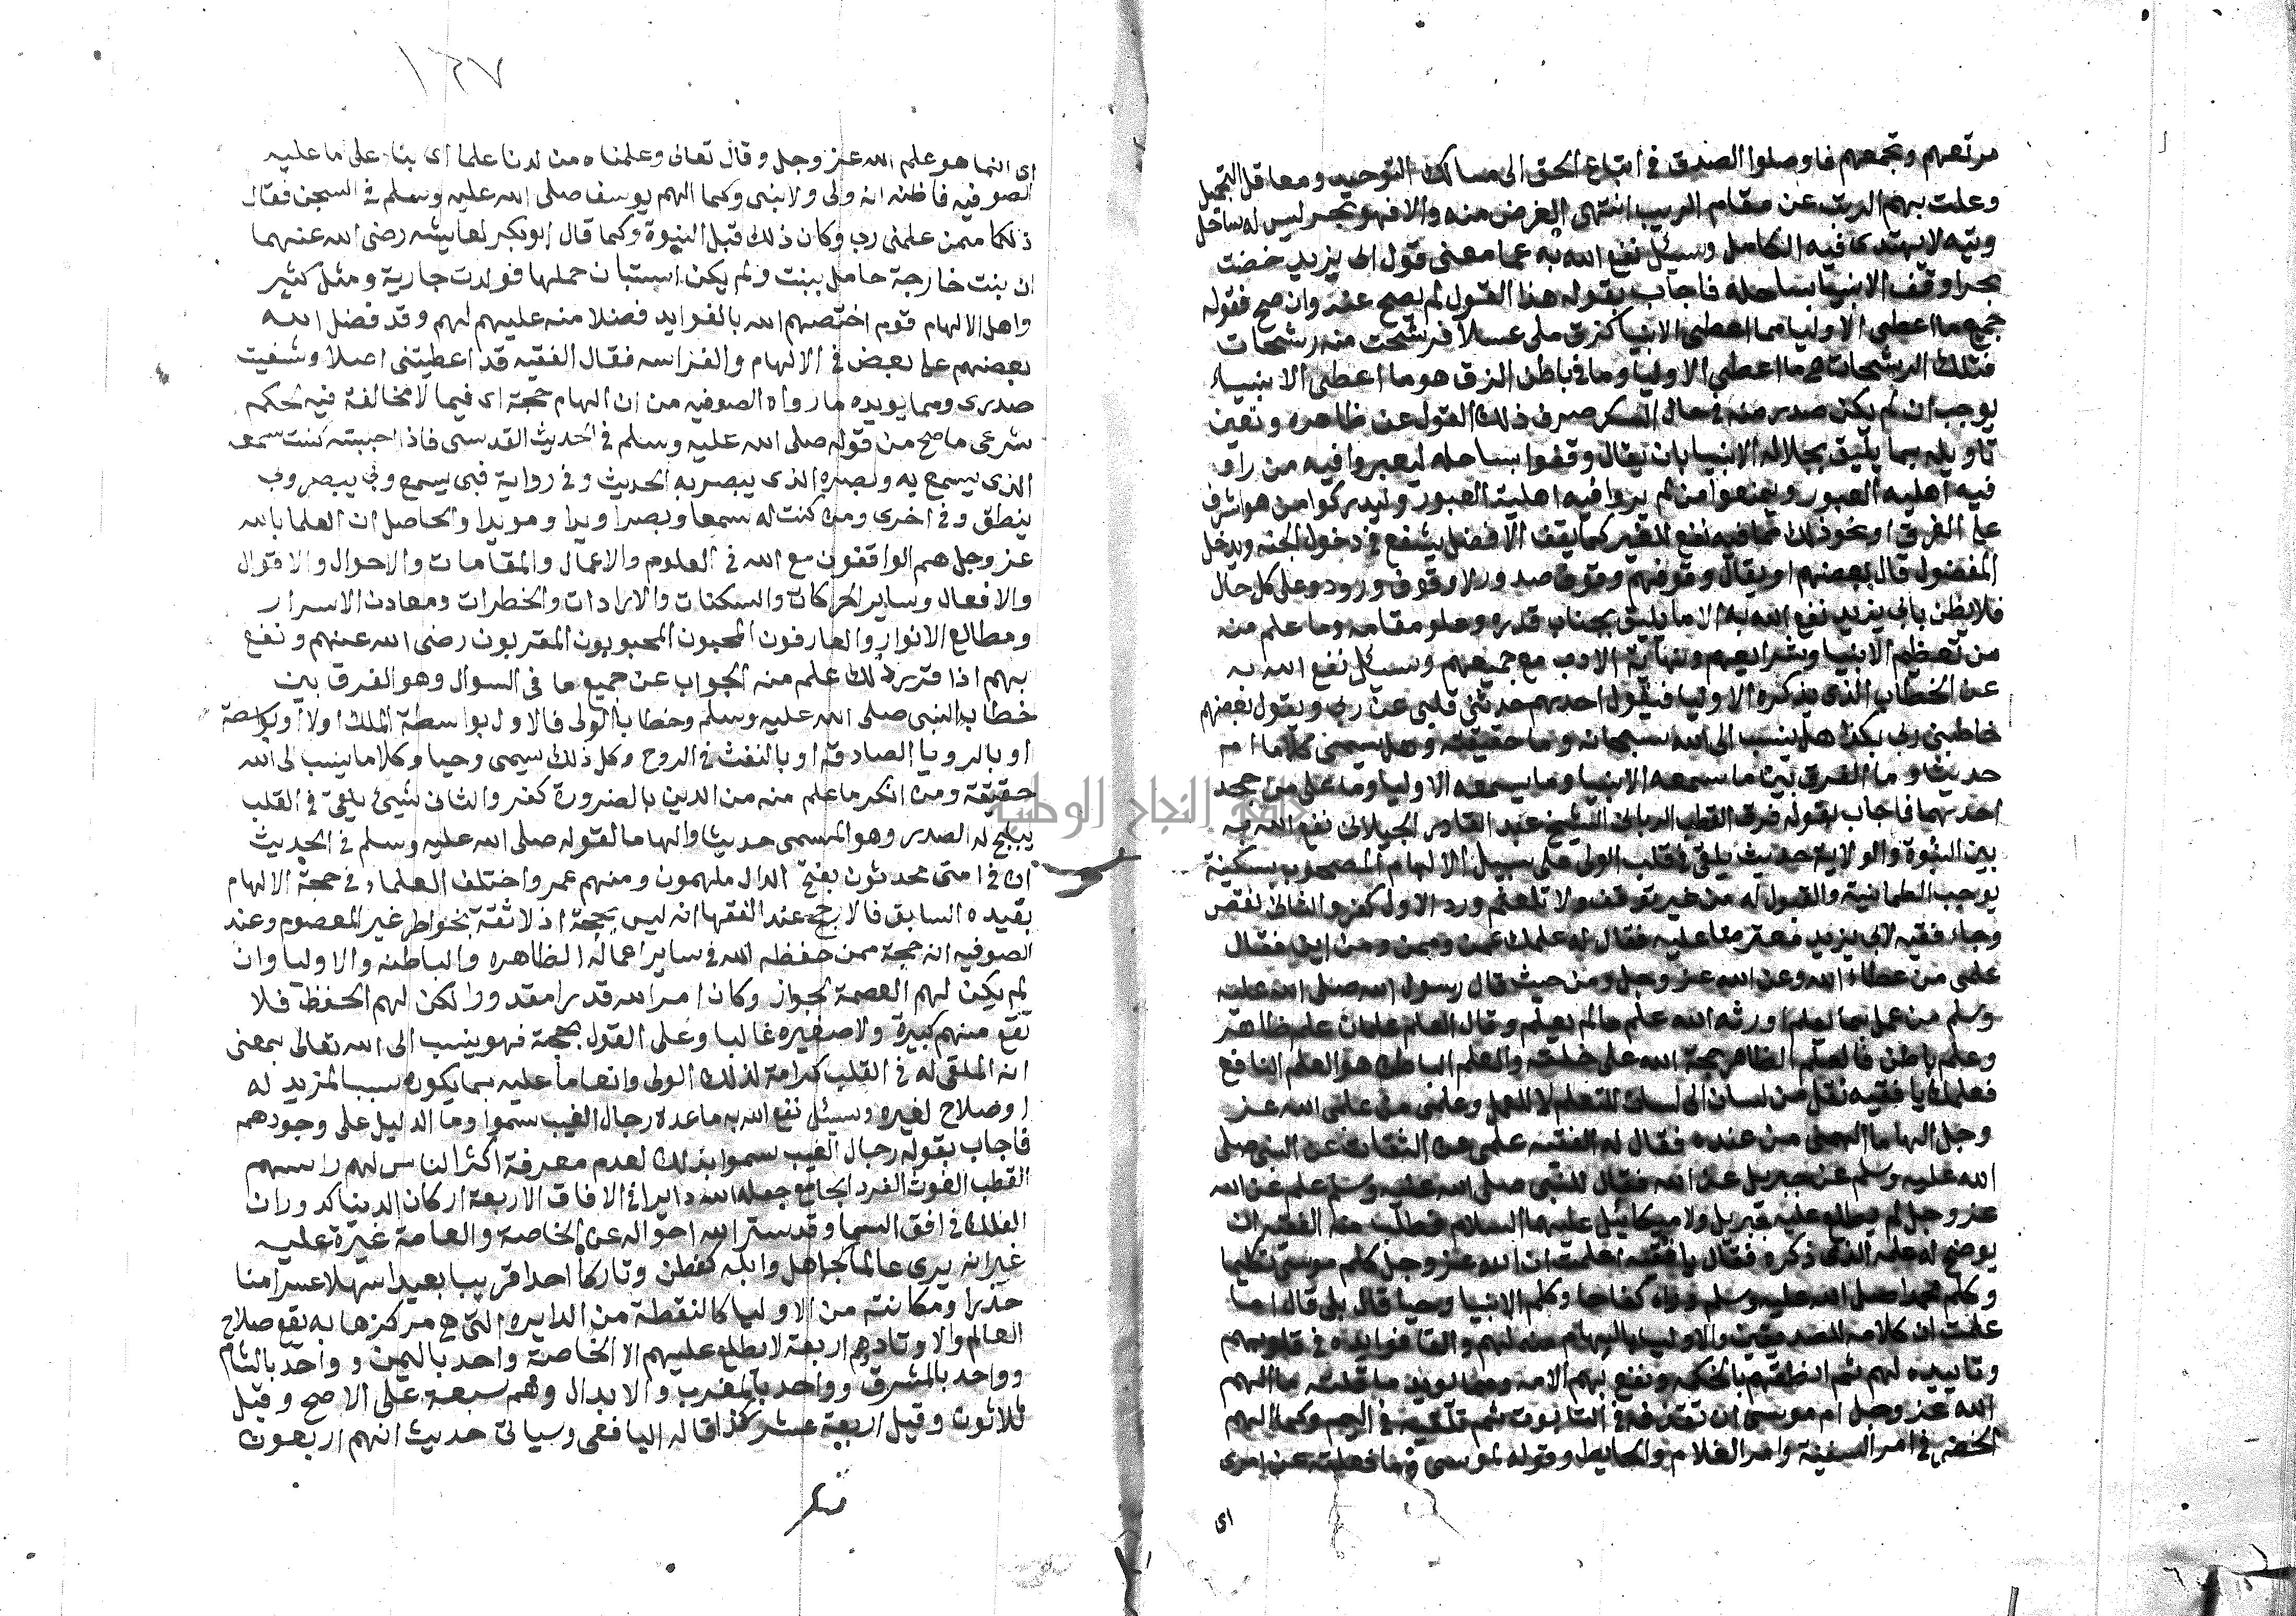 مرتعهم وتجمعهم فاوصلوا الصدق في اتباع الحق الى مسالك التوحيد ومعاقل التبجيل
وعلت بهم الرتب عن مقام الريب انتهى الغرض منه والا فهو بحر ليس له ساحل
وتيه لا يهتدى فيه الكامل وسئل نفع الله به عما معنى قول ابى يزيد خضت
بحرا وقف الانبيا بساحله فاجاب بقوله هذا القول لم يصح عنه وان صح فقوله
جميع ما اعطى الاوليا مما اعطى الانبيا كزق ملى عسلا فرشحت منه رشحات
فتلك الرشحات هى ما اعطى الاوليا وما في باطن الزق هو ما اعطى الانبياء
يوجب ان لم يكن صدر منه في حال السكر صرف ذلك القول عن ظاهره وتعين
تاويله بما يليق بجلالة الانبيا بان يقال وقفوا بساحله ليعبروا فيه من راو
فيه اهلية العبور ويمنعوا من لم يروا فيه اهلية العبور وليدركوا من هو اشرف
على الغرق او نحو ذلك مما فيه نفع للغير كما يقف الافضل يشفع في دخول الجنه ويدخل
المفضول قال بعضهم او يقال وقوفهم وقوف صدور لا وقوف ورود وعلى كل حال
فلا يظن بابى يزيد نفع الله به الا ما يليق بجناب قدره وعلو مقامه وما علم منه
من تعظيم الانبيا وشرايعهم ونهاية الادب مع جميعهم وسئل نفع الله به
عن الخطاب الذى يذكره الاوليا فيقول احدهم حدثنى قلبى عن ربى ويقول بعضهم
خاطبنى ربى بكذا هل ينسب الى الله سبحانه وما حقيقته وهل يسمى كلاما ام
حديثا وما الفرق بين ما سمعه الانبيا وما يسمعه الاوليا وما على من جحد
احدهما فاجاب بقوله فرق القطب الربانى الشيخ عبد القادر الجيلانى نفع الله به
بين النبوة والولاية حديث يلقى في قلب الولى على سبيل الالهام المصحوب بسكينة
يوجب الطمانية والقبول له من غير توقف ولا تلعثم ورد الاول كفر والثانى نقص
وجاء فقيه لابى يزيد معترضا عليه فقال له علمك عمن وممن ومن اين فقال
علمى من عطاء الله وعن الله عز وجل ومن حيث قال رسول الله صلى الله عليه
وسلم من عمل بما يعلم اورثه الله علم ما لم يعلم وقال العلم علمان علم ظاهر
وعلم باطن فالعلم الظاهر حجة الله على خلقه والعلم الباطن هو العلم النافع
فعلمك يا فقيه نقل من لسان الى لسان للتعلم لا للعمل وعلمى من علم الله عز
وجل الهاما الهمنى من عنده فقال له الفقيه علمى عن الثقات عن النبى صلى
الله عليه وسلم عن جبريل عن الله فقال للنبى صلى الله عليه وسلم علم عن الله
عز وجل لم يطلع عليه جبريل ولا ميكائيل عليهما السلام فطلب منه الفقيه ان
يوضح له علمه الذى ذكره فقال يا فقيه اعلمت ان الله عز وجل كلم موسى تكليما
وكلم محمدا صلى الله عليه وسلم وراه كفاحا وكلم الانبيا وحيا قال بلى قال اما
علمت ان كلامه للصديقين والاوليا بالهام منه لهم والقا فوايده في قلوبهم
وتاييده لهم ثم انطقهم بالحكمه ونفع بهم الامه ومما يويد ما قلته ما الهم
الله عز وجل ام موسى ان تقذفه في التابوت ثم تلقيه في اليم وكما الهم
الخضر في امر السفينة وامر الغلام والحايط وقوله لموسى وما فعلته عن امرى
اى
١٢٧
اى انما هو علم الله عز وجل وقال تعالى وعلمناه من لدنا علما اى بناء على ما عليه
الصوفيه فاظنه انه ولى ولا نبى وكما الهم يوسف صلى الله عليه وسلم في السجن فقال
ذلكما ممن علمنى ربى وكان ذلك قبل النبوة وكما قال ابو بكر لعايشه رضى الله عنهما
ان بنت خارجة حامل ببنت ولم يكن استبان حملها فولدت جارية ومثل كثير
واهل الالهام قوم اختصهم الله بالفوايد فضلا منه عليهم لهم وقد فضل الله
بعضهم على بعض في الالهام والفراسه فقال الفقيه قد اعطيتنى اصلا وشفيت
صدرى ومما يويده ما رواه الصوفيه من ان الهام حجة اى فيما لا مخالفة فيه لحكم
شرعى ما صح من قوله صلى الله عليه وسلم في الحديث القدسى فاذا احببته كنت سمعه
الذى يسمع به وبصره الذى يبصر به الحديث وفي رواية فبى يسمع وبى يبصر وبى
ينطق وفي اخرى ومن كنت له سمعا وبصرا ويدا ومويدا والحاصل ان العلما بالله
عز وجل هم الواقفون مع الله في العلوم والاعمال والمقامات والاحوال والاقوال
والافعال وساير الحركات والسكنات والارادات والخطرات ومعادن الاسرار
ومطالع الانوار والعارفون المحبون المحبوبون المقربون رضى الله عنهم ونفع
بهم اذا تقرر ذلك علم منه الجواب عن جميع ما في السوال وهو الفرق بين
خطاب النبى صلى الله عليه وسلم وخطاب الولى فالاول بواسطة الملك اولا او بواسطة
او بالرويا الصادقه او بالنفث في الروح وكل ذلك يسمى وحيا وكلاما ينسب الى الله
حقيقة ومن انكر ما علم منه من الدين بالضرورة كفر والثانى شيئ يلقى في القلب
يبلج له الصدر وهو المسمى حديثا والهاما لقوله صلى الله عليه وسلم في الحديث
ان في امتى محدثون بفتح الدال ملهمون ومنهم عمر واختلف العلماء في حجة الالهام
بقيده السابق فالارجح عند الفقها انه ليس بحجة اذ لا ثقة بخواطر غير المعصوم وعند
الصوفيه انه حجة ممن حفظه الله في ساير اعماله الظاهره والباطنه والاوليا وان
لم يكن لهم العصمة لجواز وكان امر الله قدرا مقدورا لكن لهم الحفظ فلا
تقع منهم كبيرة ولا صغيره غالبا وعلى القول بحجة فهو ينسب الى الله تعالى بمعنى
انه الملقى له في القلب كرامة لذلك الولى وانعاما عليه بما يكون سببا لمزيد له
او صلاح لغيره وسئل نفع الله به ما عدة رجال الغيب سموا وما الدليل على وجودهم
فاجاب بقوله رجال الغيب سموا بذلك لعدم معرفة اكثر الناس لهم راسهم
القطب الغوث الفرد الجامع جعله الله دايرا في الافاق الاربعة اركان الدنيا كدوران
الفلك في افق السما وقد ستر الله احواله عن الخاصة والعامة غيرة عليه
غير انه يرى عالما كجاهل وابله كفطن وتاركا احدا قريبا بعيدا سهلا عسرا امنا
حذرا ومكانته من الاوليا كالنقطة من الدايره التى هى مركزها به يقع صلاح
العالم والاوتاد وهم اربعة لا يطلع عليهم الا الخاصة واحد باليمن وواحد بالشام
وواحد بالمشرق وواحد بالمغرب والابدال وهم سبعة على الاصح وقيل
ثلاثون وقيل اربعة عشر كذا قاله اليافعى وسياتى حديث انهم اربعون
جامعة النجاح الوطنية